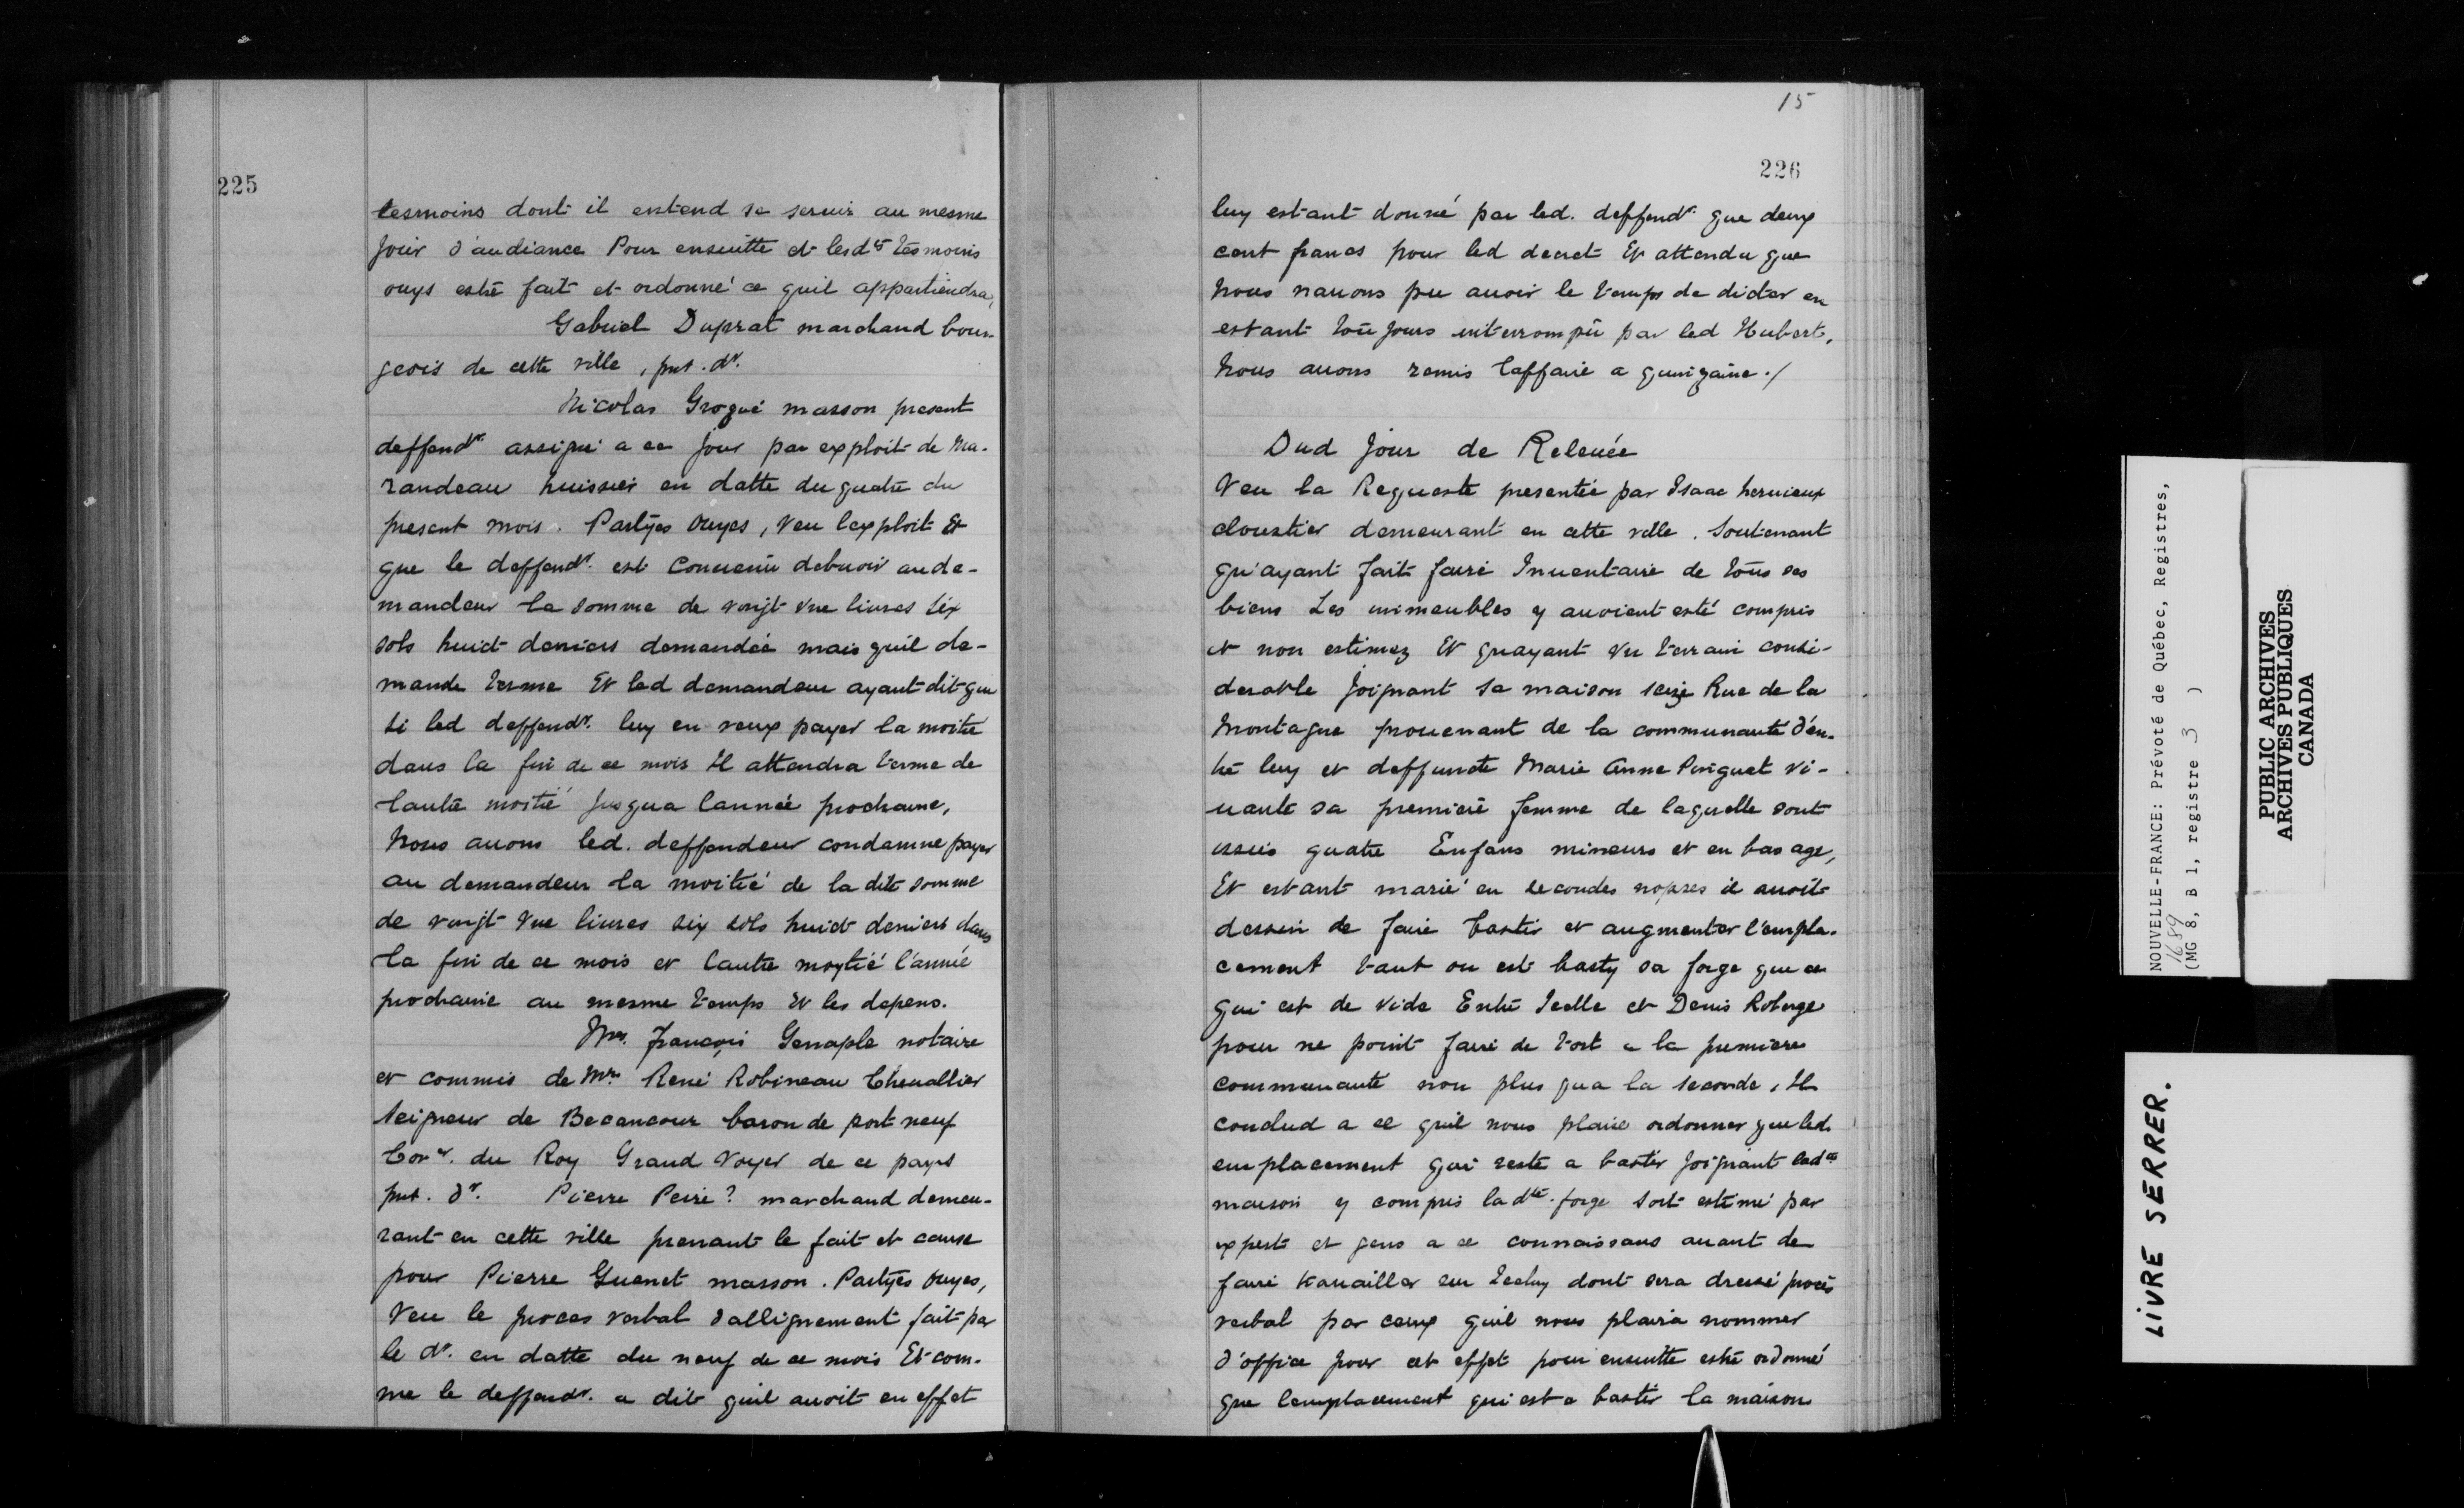 225
tesmoins dont il entend se seruir au mesme
Jour d'audiance Pour ensuitte et lesd.ts tesmoins
ouys estre fait et ordonné ce quil appartiendra,
Gabriel Duprat marchand bour-
geois de cette ville, pnt. dr.
Nicolas Grogué masson present
deffendr. assigné a ce jour par exploit de Ma-
randeau huissier en datte du quatre du
present mois. Partyes Ouyes, Veu lexploit Et
que le deffendr. est Conuenu debuoir au de-
mandeur la somme de vingt Vne liures Six
sols huict deniers demandée mais quil de-
mande terme Et led demandeur ayant dit que
Si led deffendr. luy en veux payer la moitié
dans la fin de ce mois Il attendra terme de
lautre moitié Jusqua lannée prochaine,
Nous auons led. deffendeur condamne payer
au demandeur la moitié de la dite somme
de vingt Vne liures six sols huict deniers dans
la fin de ce mois et lautre moytié l'année
prochaine au mesme temps Et les depens.
Mre. françois Genaple notaire
et commis de Mre René Robineau Cheuallier
Seigneur de Becancour baron de port neuf
Conr. du Roy Grand Voyer de ce pays
pnt. dr. Pierre Peiré? marchand demeu-
rant en cette ville prenant le fait et cause
pour Pierre Guenet masson. Partyes Ouyes,
Veu le proces verbal dallignement fait par
le dr. en datte du neuf de ce mois Et com-
me le deffendr. a dit quil auoit en effet
15
226
luy estant donné par led. deffendr. que deux
cent francs pour led decret Et attendu que
Nous nauons peu auoir le temps de dicter en
estant toujours interrompu par led Hubert,
Nous auons remis laffaire a quinzaine./
Dud Jour de Releuée
Veu la Requeste presentée par Isaac heruieux
cloustier demeurant en cette ville. Soutenant
qu'ayant fait faire Inuentaire de tous ses
biens Les immeubles y auoient esté compris
et non estimez Et quayant Vn terrain consi-
derable Joignant Sa maison seize Rue de la
Montagne prouenant de la communauté d'en-
tre luy et deffuncte Marie Anne Pinguet Vi-
uante sa premiere femme de laquelle sont
issuis quatre Enfans mineurs et en bas age,
Et estant marié en secondes nopses il auoit
dessein de faire bastir et augmenter l'empla-
cement tant ou est basty sa forge que ce
qui est de Vide Entre Icelle et Denis Roberge
pour ne point faire de tort a la premiere
communauté non plus qua la seconde, Il
conclud a ce quil nous plaise ordonner que led.
emplacement qui reste a bastir joignant lad.te
maison y compris la dte. forge soit estimé par
expert et gens a ce connaissans auant de
faire trauailler sur Iceluy dont sera dressé procés
verbal par ceux quil nous plaira nommer
d'office pour cet effet pour ensuitte estre ordonné
que lemplacement qui est a bastir la maison
NOUVELLE-FRANCE: Prévoté de Québec, Registres,
1689
(MG 8, B 1, registre 3 )
PUBLIC ARCHIVES
ARCHIVES PUBLIQUES
CANADA
LIVRE SERRER.